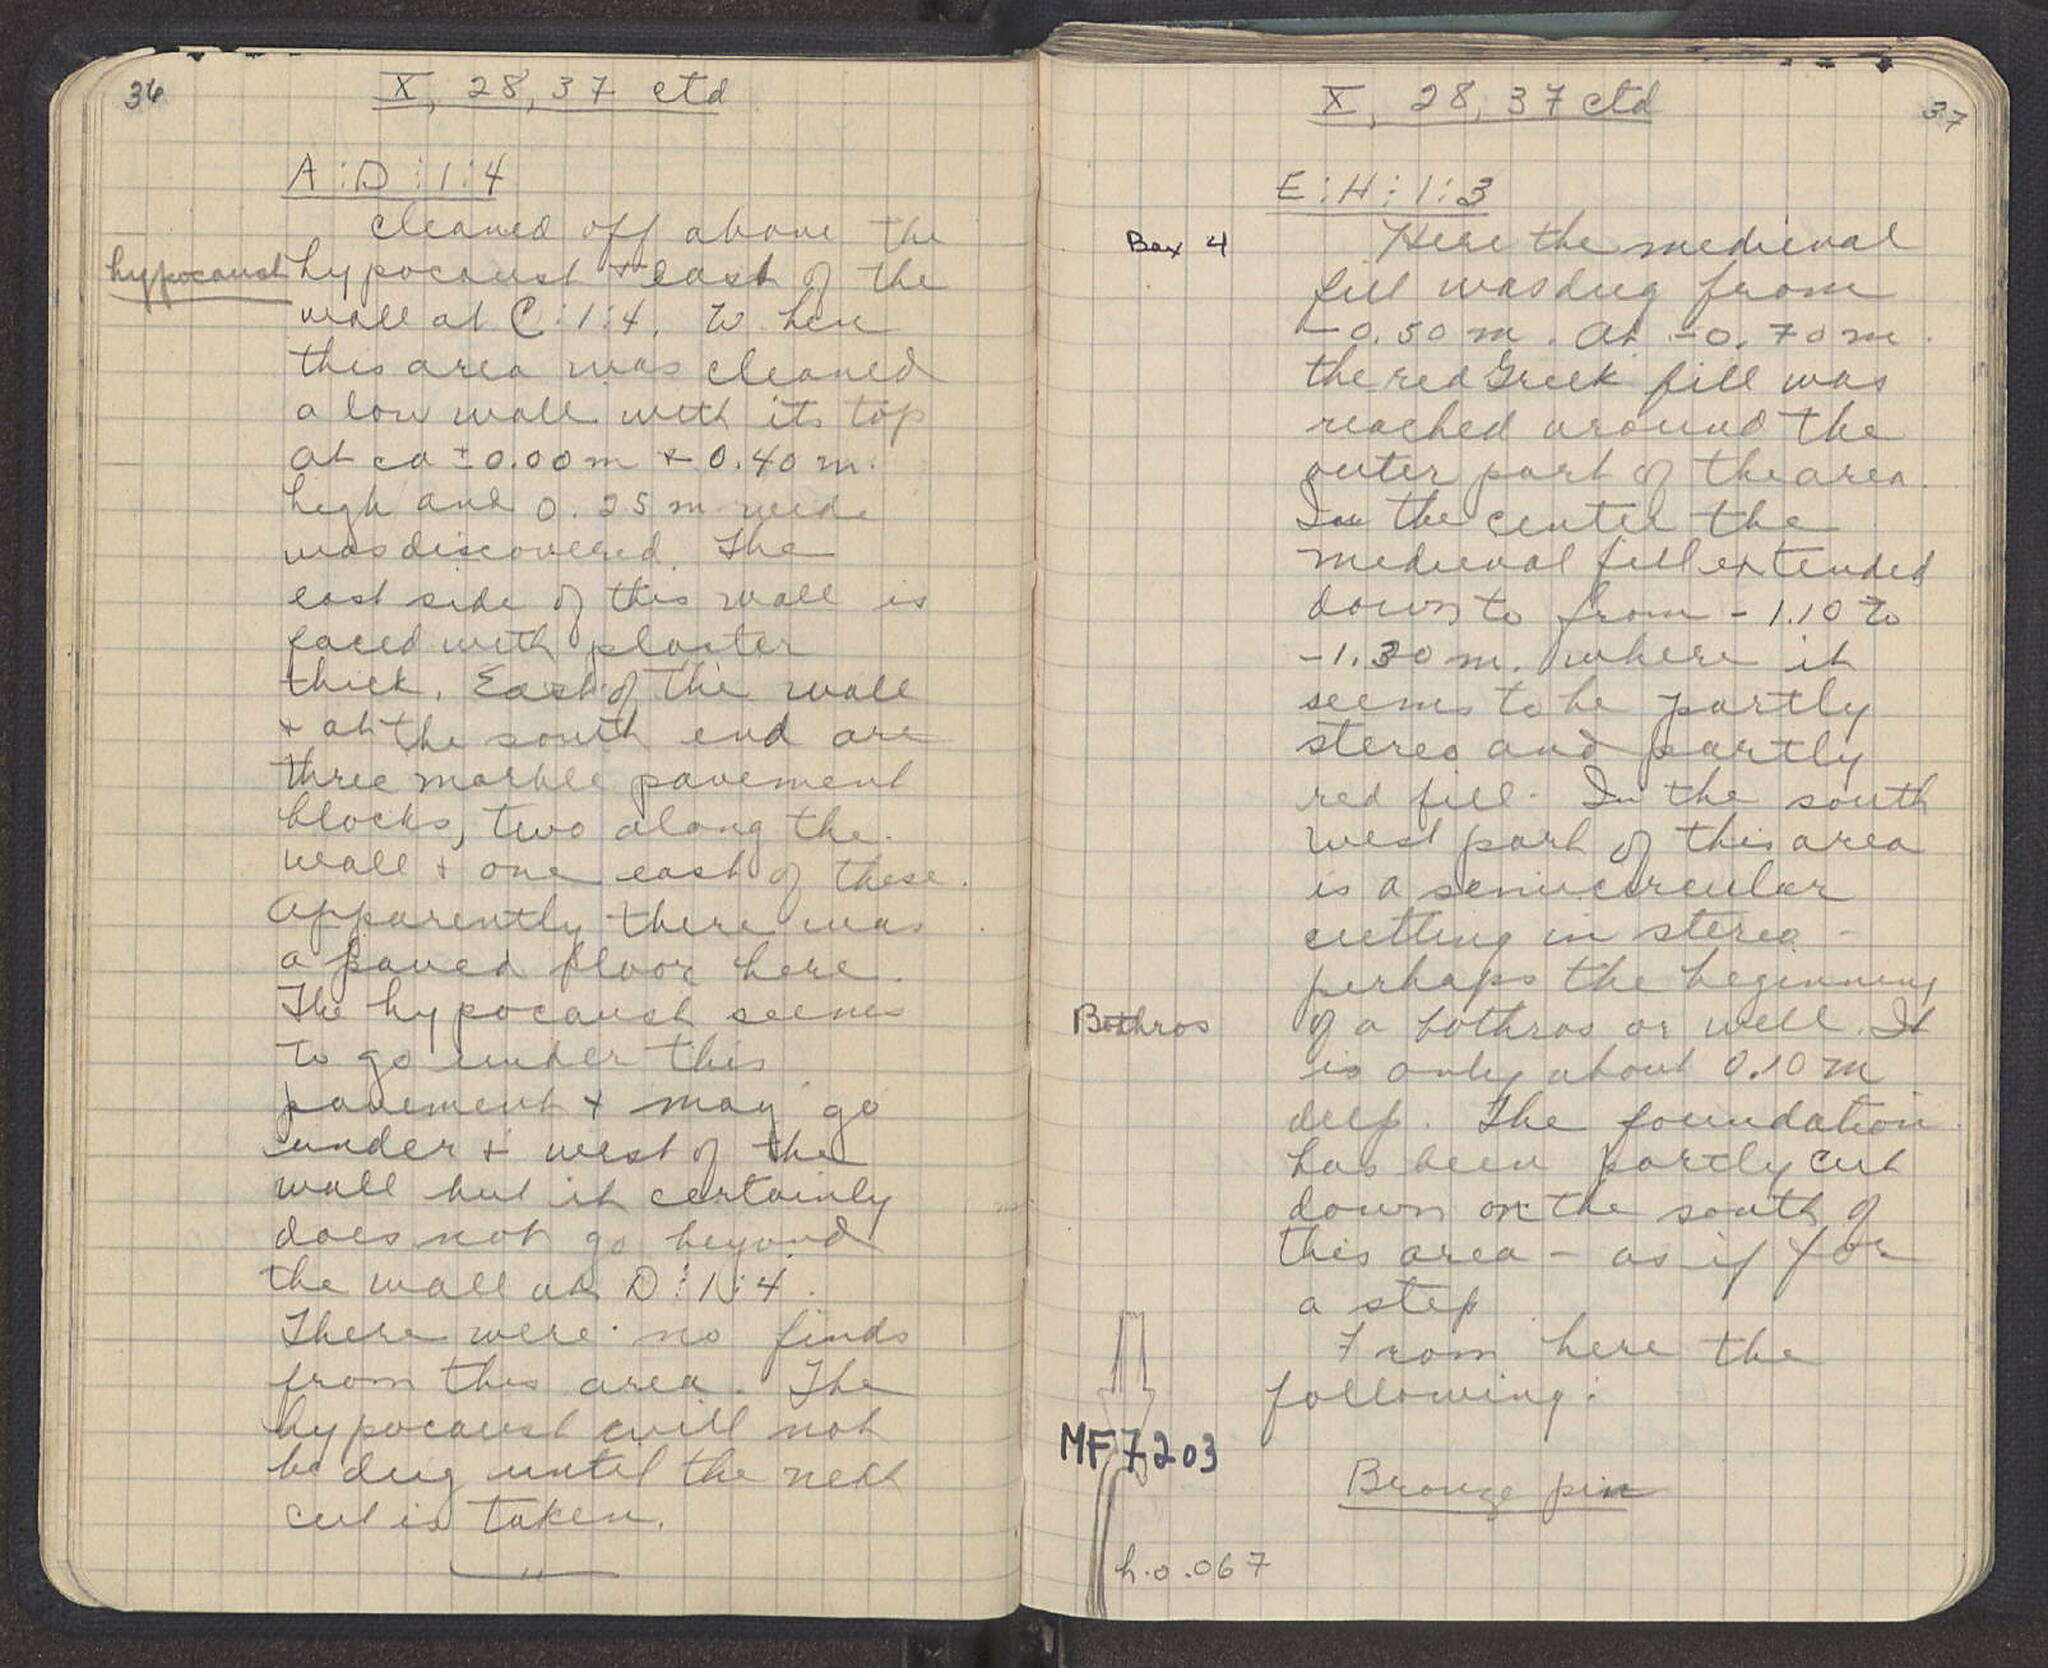 36
X, 28, 37 ctd
A:D:1:4
cleaned off above the
hypocaust
hypocaust + east of the
wall at C:1:4. When
this area was cleaned
a low wall with its top
at ca ±0.00 m + 0.40 m.
high and 0.25 m wide
was discovered. The
east side of this wall is
faced with plaster
thick. East of the wall
+ at the south end are
three marble pavement
blocks, two along the
wall + one east of these.
Apparently there was
a paved floor here.
The hypocaust seems
to go under this
pavement + may go
under + west of the
wall but it certainly
does not go beyond
the wall at D:1:4.
There were no finds
from this area. The
hypocaust will not
be dug until the next
cut is taken.
37
X, 28, 37 ctd
E:H:1:3
Box 4
Here the medieval
fill was dug from
-0.50 m. At -0.70 m.
the red Greek fill was
reached around the
outer part of the area.
In the center the
medieval fill extended
down to from -1.10 to
-1.30 m. where it
seems to be partly
stereo and partly
red fill. In the south
west part of this area
is a semicircular
cutting in stereo -
perhaps the beginning
Bothros
of a bothros or well. It
is only about 0.10 m
deep. The foundation
has been partly cut
down on the south of
this area - as if for
a step
From here the
following:
MF 7203
Bronze pin
h. 0.067